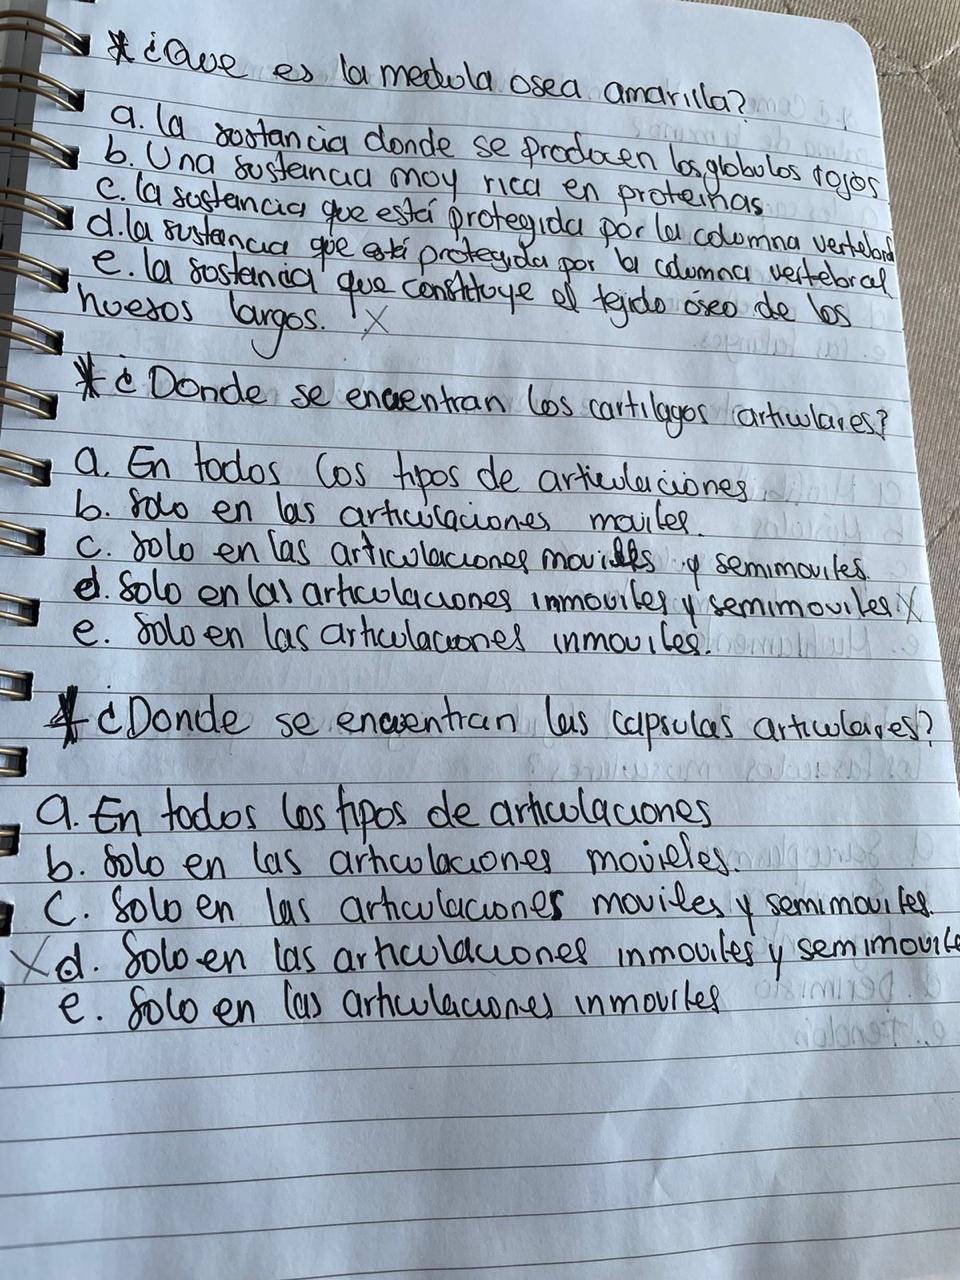 * ¿Que es la medula osea amarilla?
a. la sustancia donde se producen los globulos rojos
b. Una sustancia muy rica en proteinas
c. la sustancia que está protegida por la columna vertebral
d. la sustancia que está protegida por la columna vertebral
e. la sustancia que constituye el tejido óseo de los
huesos largos. X
* ¿Donde se encuentran los cartilagos articulares?
a. En todos los tipos de articulaciones
b. Solo en las articulaciones moviles.
c. Solo en las articulaciones moviles y semimoviles.
d. Solo en las articulaciones inmoviles y semimoviles X
e. Solo en las articulaciones inmoviles.
* ¿Donde se encuentran las capsulas articulares?
a. En todos los tipos de articulaciones
b. Solo en las articulaciones moviles.
c. Solo en las articulaciones moviles y semimoviles.
X d. Solo en las articulaciones inmoviles y semimovile
e. Solo en las articulaciones inmoviles